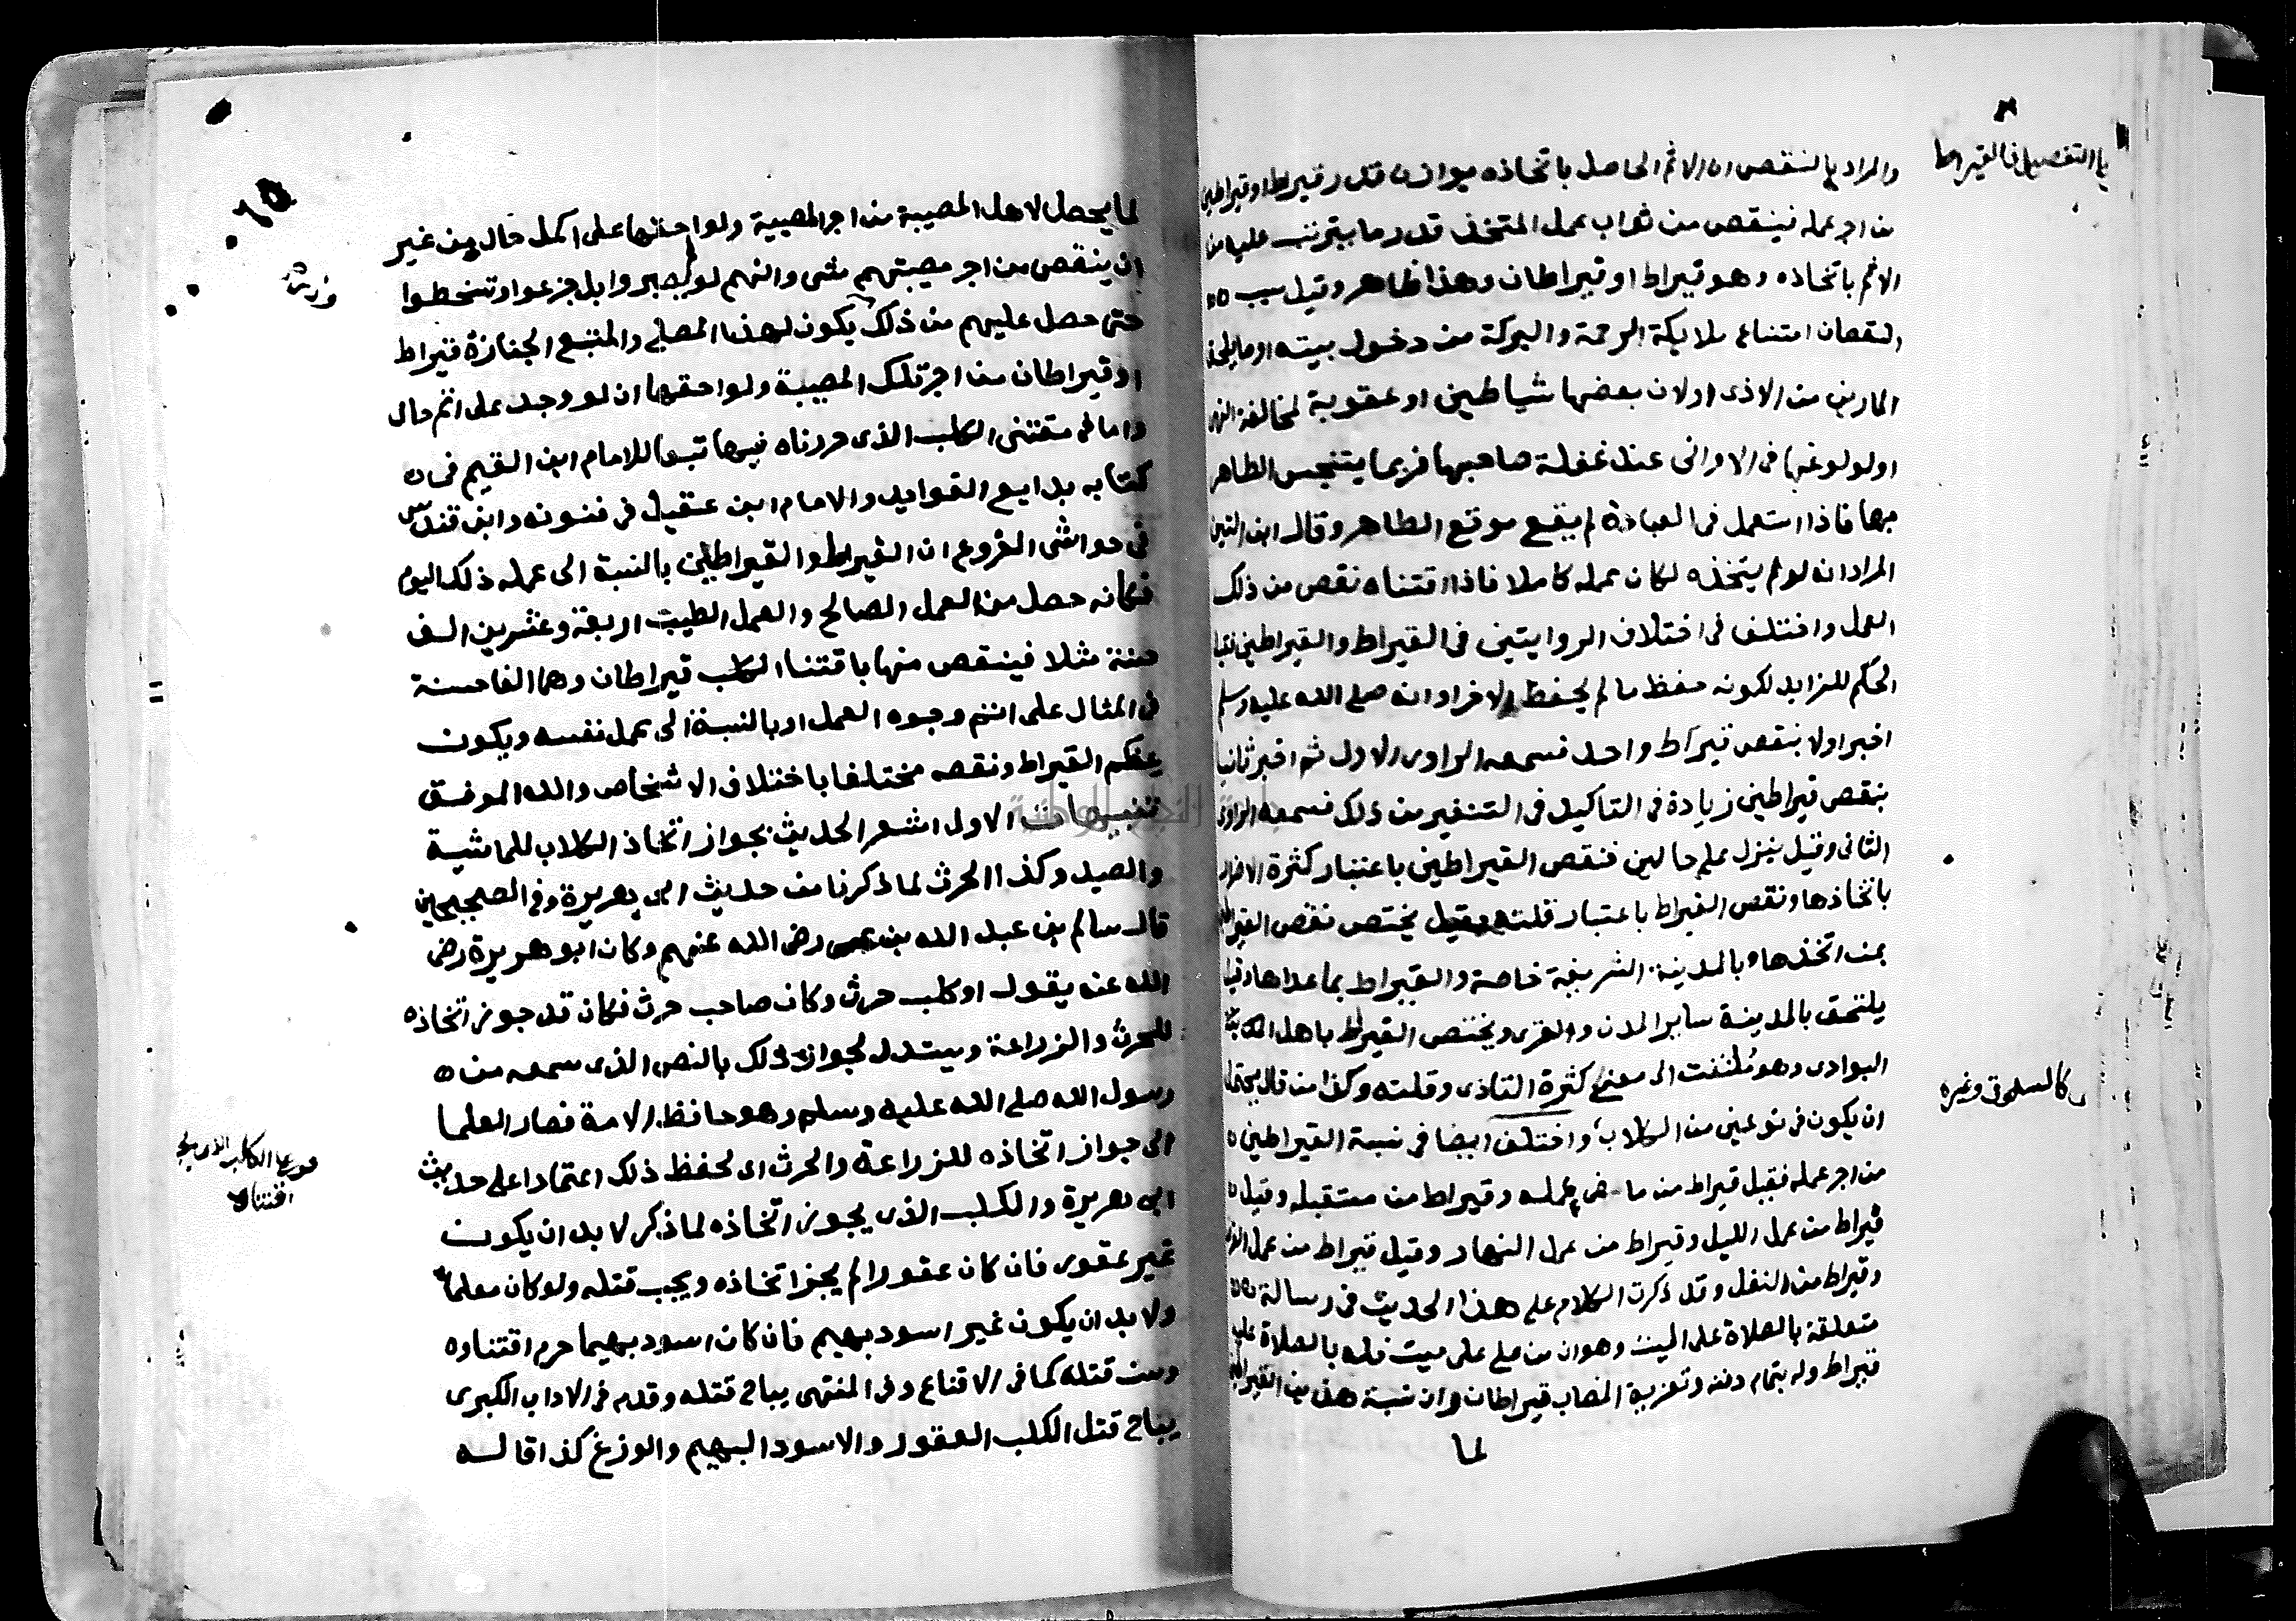 والمراد بالنقص ان الاثم الحاصل باتخاذه يوازن قدر قيراط او قيراطين
من اجر عمله فينقص من ثواب عمل المتخذ قدر ما يترتب عليه من
الاثم باتخاذه وهو قيراط او قيراطان وهذا ظاهر وقيل سبب
النقصان امتناع ملايكة الرحمة والبركة من دخول بيته او ما يلحق
المارين من الاذى او لان بعضها شياطين او عقوبة لمخالفة النهي
او لولوغها في الاواني عند غفلة صاحبها فربما يتنجس الطاهر
بها فاذا استعمل في العبادة لم يقع موقع الطاهر وقال ابن التين
المراد انه لو لم يتخذه لكان عمله كاملا فاذا اقتناه نقص من ذلك
العمل واختلف في اختلاف الروايتين في القيراط والقيراطين
الحكم للزايد لكونه حفظ ما لم يحفظ الاخر او انه صلى الله عليه وسلم
اخبر اولا بنقص قيراط واحد فسمعه الراوي الاول ثم اخبر ثانيا
بنقص قيراطين زيادة في التاكيد في التنفير من ذلك فسمعه الراوي
الثاني وقيل ينزل على حالين فنقص القيراطين باعتبار كثرة الاضرار
باتخاذها ونقص القيراط باعتبار قلته وقيل يختص نقص القيراطين
بمن اتخذها بالمدينة الشريفة خاصة والقيراط بما عداها وقيل
يلتحق بالمدينة ساير المدن والقرى ويختص القيراط باهل
البوادي وهو ملتفت الى معنى كثرة التاذي وقلته وكذا من قال يحتمل
ان يكون في نوعين من الكلاب واختلف ايضا في نسبة القيراطين
من اجر عمله فقيل قيراط من ماضي عمله وقيراط من مستقبله وقيل
قيراط من عمل الليل وقيراط من عمل النهار وقيل قيراط من عمل الفرض
وقيراط من النفل وقد ذكرت الكلام على هذا الحديث في رسالة
متعلقة بالصلاة على الميت وهو ان من صلى على ميت فله بالصلاة عليه
قيراط وله بتمام دفنه وتعزية المصاب قيراطان وان نسبة هذين القيراطين
لما
يا التفصيل في القيراط
كالسلوقي وغيره
لما يحصل لاهل المصيبة من اجر المصيبة ولواحقها على اكمل حال من غير
ان ينقص من اجر مصيبتهم شي وانهم لو لم يصبروا بل جزعوا وتسخطوا
حتى حصل عليهم من ذلك يكون لهذا المصلي والمتبع الجنازة قيراط
او قيراطان من اجر تلك المصيبة ولواحقها ان لو وجد على اتم حال
واما في مقتني الكلب الذي حررناه فيها تبعا للامام ابن القيم في
كتابه بدايع الفوايد والامام ابن عقيل في فنونه وابن قندس
في حواشي الفروع ان القيراط والقيراطين بالنسبة الى عمله ذلك اليوم
فكانه حصل من العمل الصالح والعمل الطيب اربعة وعشرين الف
حسنة مثلا فينقص منها باقتنا الكلب قيراطان وهما الفا حسنة
في المثال على اتم وجوه العمل او بالنسبة الى عمل نفسه ويكون
عظم القيراط ونقصه مختلفا باختلاف الاشخاص والله الموفق
تنبيهات الاول اشعر الحديث بجواز اتخاذ الكلاب للماشية
والصيد وكذا الحرث لما ذكرنا من حديث ابي هريرة وفي الصحيحين
قال سالم بن عبد الله بن عمر رضي الله عنهم وكان ابو هريرة رضي
الله عنه يقول او كلب حرث وكان صاحب حرث فكان قد جوز اتخاذه
للحرث والزراعة ويستدل لجواز ذلك بالنص الذي سمعه من
رسول الله صلى الله عليه وسلم وهو حافظ الامة فصار العلما
الى جواز اتخاذه للزراعة والحرث اي لحفظ ذلك اعتمادا على حديث
ابي هريرة والكلب الذي يجوز اتخاذه لما ذكر لا بد ان يكون
غير عقور فان كان عقورا لم يجز اتخاذه ويجب قتله ولو كان معلما
ولا بد ان يكون غير اسود بهيم فان كان اسود بهيما حرم اقتناوه
وسن قتله كما في الاقناع وفي المنتهى يباح قتله وقدم في الاداب الكبرى
يباح قتل الكلب العقور والاسود البهيم والوزغ كذا قاله
الكلب الذي
اقتناه